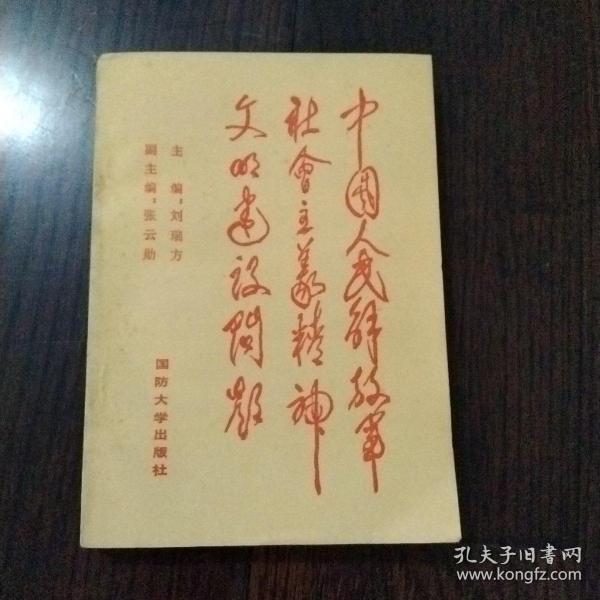 中国人民解放军
社會主義精神
文明建设問题
主编：刘瑞方
副主编：张云勋
国防大学出版社
孔夫子旧書网
www.kongfz.com